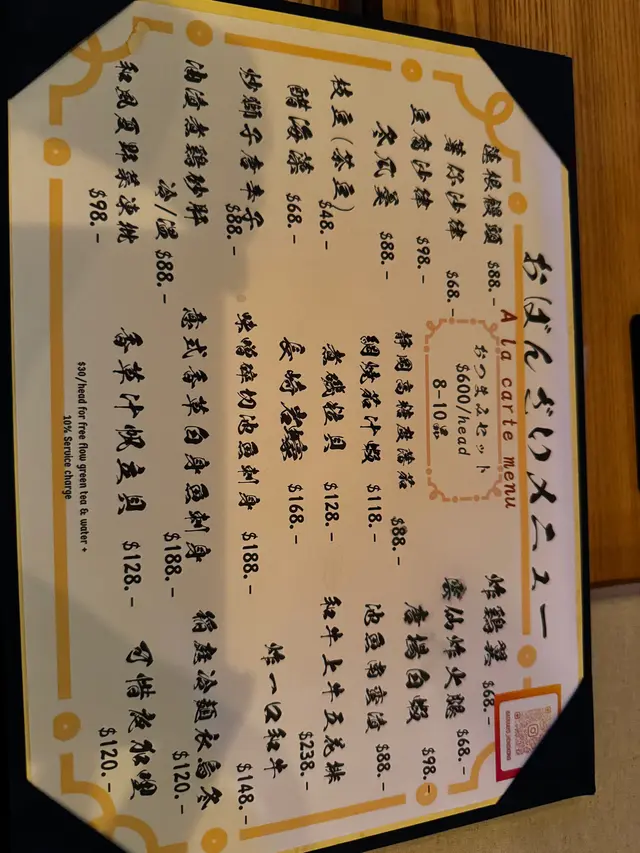 おばんざいメニュー
A la carte menu
おつまみセット
$600/head
8-10品
蓮根饅頭 $88.-
薯仔沙律 $68.-
豆腐沙律 $98.-
冬瓜羹 $88.-
枝豆(茶豆) $48.-
醋海藻 $68.-
炒獅子唐辛子 $88.-
油漬煮鶏砂肝
冷/溫 $88.-
和風夏野菜凍批 $98.-
靜岡高糖度蕃茄 $88.-
網燒茄汁蝦 $118.-
$128.-
長崎岩蠔 $168.-
味噌碎切池魚刺身 $188.-
意式香草白身魚刺身 $188.-
香草汁帆立貝 $128.-
炸鶏翼 $68.-
雲仙炸火腿 $68.-
唐揚白蝦 $98.-
池魚南蠻漬 $88.-
和牛上牛五花排 $238.-
炸一口和牛 $148.-
$120.-
可惜夜咖喱 $120.-
$30/head for free flow green tea & water +
10% Service charge